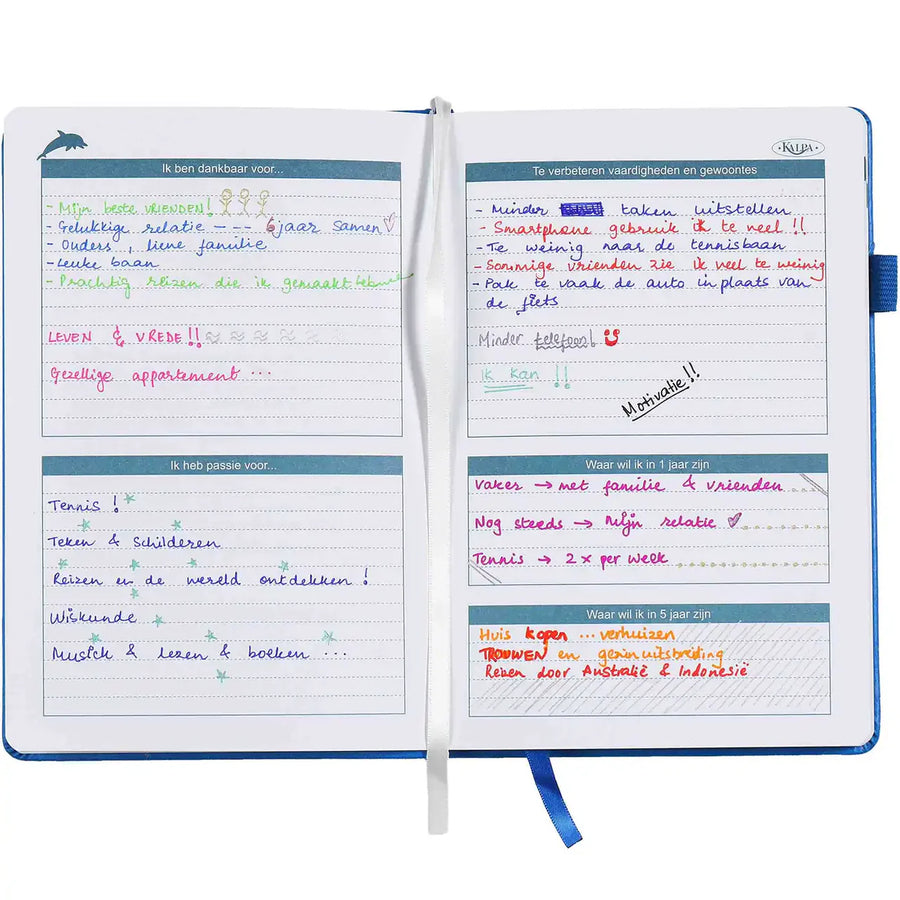 Ik ben dankbaar voor...
- Mijn beste VRIENDEN!
- Gelukkige relatie - - - 6jaar samen
- Ouders, lieve familie
- Leuke baan
- Prachtig reizen die ik gemaakt heb
LEVEN & VREDE!!
Gezellige appartement ...
Ik heb passie voor...
Tennis !
Teken & Schilderen
Reizen en de wereld ontdekken !
Wiskunde
Musick & lezen & boeken ...
KALPA
Te verbeteren vaardigheden en gewoontes
- Minder taken uitstellen
- Smartphone gebruik ik te veel !!
- Te weinig naar de tennisbaan
- Sommige vrienden zie ik veel te weinig
- Pak te vaak de auto in plaats van
de fiets
Minder telefoon!
Ik kan !!
Motivatie!!
Waar wil ik in 1 jaar zijn
Vaker → met familie & vrienden
Nog steeds → Mijn relatie
Tennis → 2 x per week
Waar wil ik in 5 jaar zijn
Huis kopen ... verhuizen
TROUWEN en gezinuitsbreiding
Reizen door Australië & Indonesië